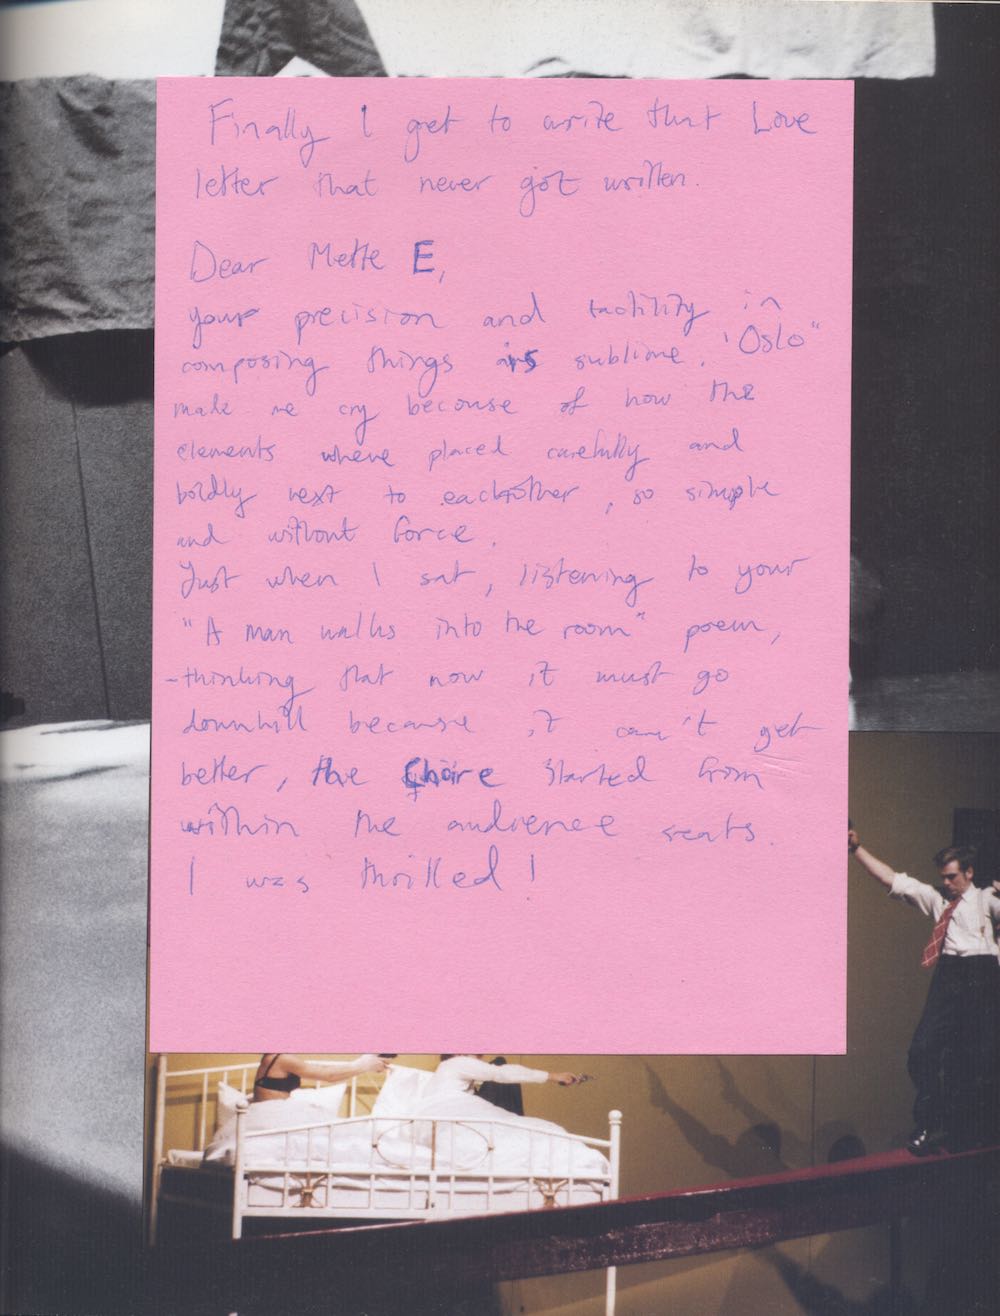 Finally I get to write that Love
letter that never got written.
Dear Mette E,
your precision and tactility in
composing things is sublime. "Oslo"
made me cry because of how the
elements where placed carefully and
boldly next to eachother, so simple
and without force.
Just when I sat, listening to your
"A man walks into the room" poem,
-thinking that now it must go
downhill because it can't get
better, the Choire started from
within the audience seats.
I was thrilled!